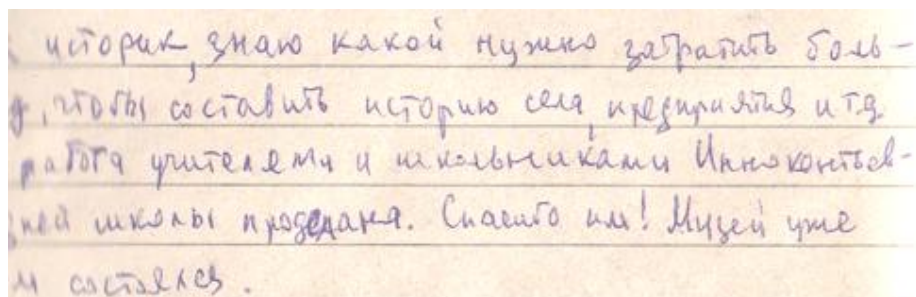 историк, знаю какой нужно затратить боль-
, чтобы составить историю села, предприятия и т.д.
работа учителями и школьниками Иннокентьев-
ней школы проделана. Спасибо им! Музей уже
состоялся.